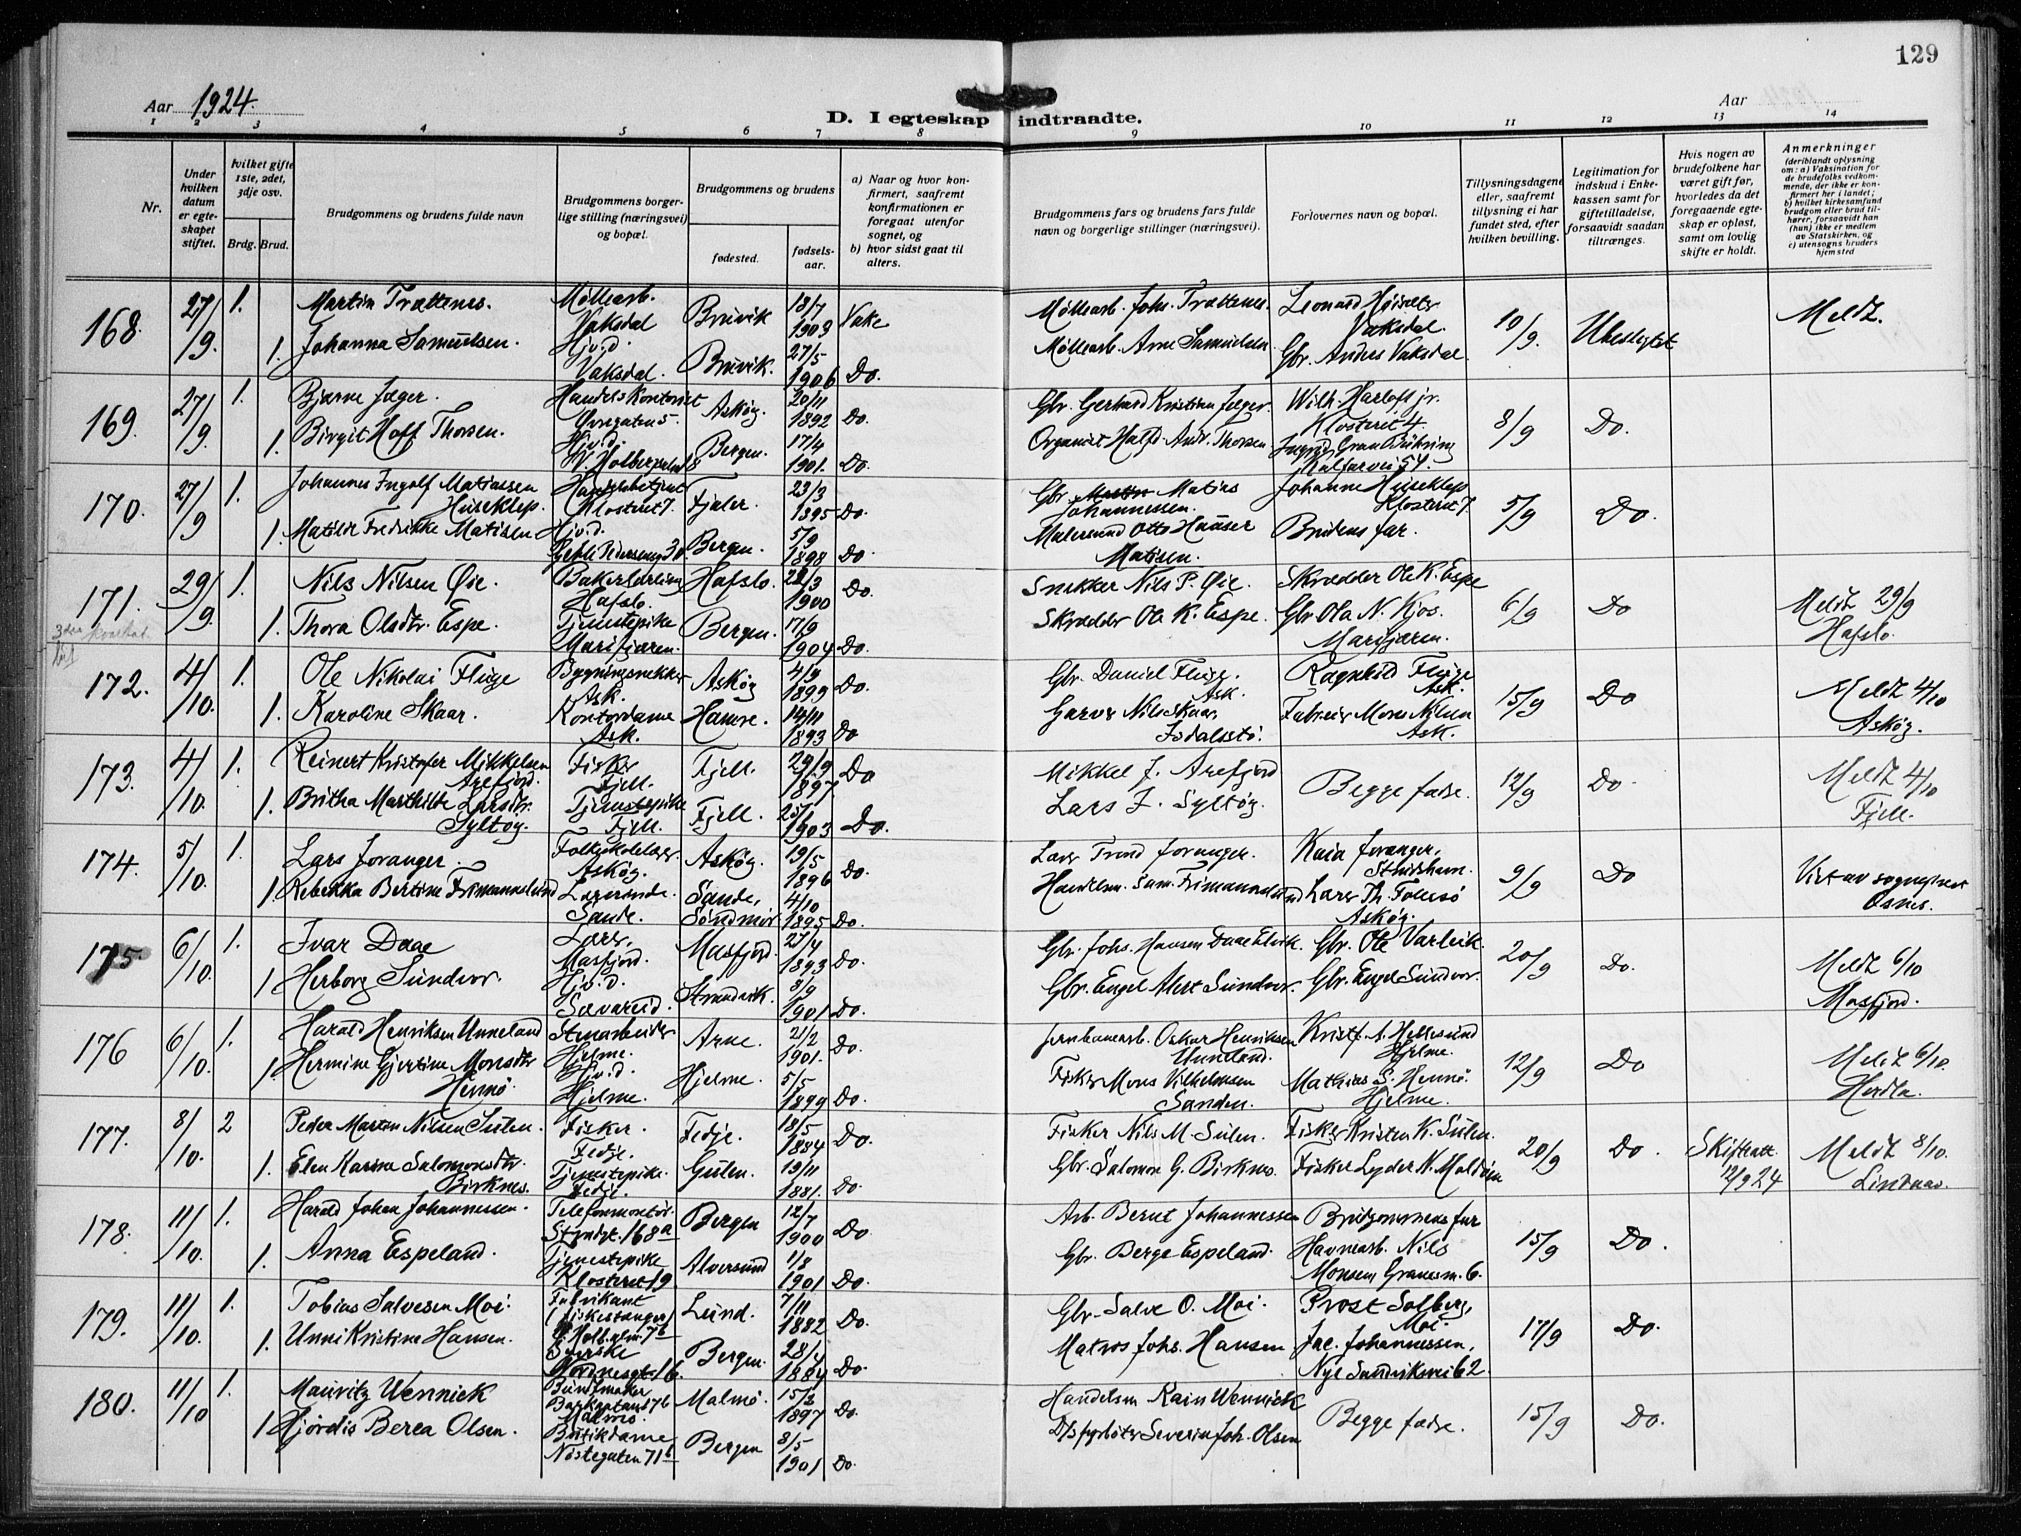 129
Aar 1924.
Aar
D. I egteskap indtraadte.
1 2 3 4 5 6 7 8 9 10 11 12 13 14
Nr.
Under hvilken datum er egte-skapet stiftet.
hvilket gifte 1ste, 2det, 3dje osv.
Brdg. Brud.
Brudgommens og brudens fulde navn
Brudgommens borger-lige stilling (næringsvei) og bopæl.
Brudgommens og brudens
fødested.
fødsels-aar.
a) Naar og hvor kon-firmert, saafremt konfirmationen er foregaat utenfor sognet, og
b) hvor sidst gaat til alters.
Brudgommens fars og brudens fars fulde navn og borgerlige stillinger (næringsvei).
Forlovernes navn og bopæl.
Tillysningsdagene eller, saafremt tillysning ei har fundet sted, efter hvilken bevilling.
Legitimation for indskud i Enke-kassen samt for giftetilladelse, forsaavidt saadan tiltrænges.
Hvis nogen av brudefolkene har været gift før, hvorledes da det foregaaende egte-skap er opløst, samt om lovlig skifte er holdt.
Anmerkninger
(deriblandt oplysning om: a) Vaksination for de brudefolks vedkom-mende, der ikke er kon-firmert her i landet; b) hvilket kirkesamfund brudgom eller brud til-hører, forsaavidt han (hun) ikke er medlem av Statskirken, og c) utensogns bruders hjemsted
168. 27/9. 1. Martin Trættenes. Møllearb. Vaksdal Bruvik 18/7 1903 Vake Møllearb. Johs. Trættenes. Leonard Vaksdal. 10/9. Ubeslegtet Meldt.
1. Johanna Samuelsen. Hj.v.d. Vaksdal. Bruvik. 27/5 1906 Do. Møllearb. Arne Samuelsen. Gbr. Anders Vaksdal.
169. 27/9. 1. Bjarne Jæger. Handelskontorist Øvregaten 5. Askøy. 20/11 1892 Do. Gbr. Gerhard Kristian Jæger. Wilh. Harloff jr. Klosteret 4. 8/9 Do.
1. Birgit Hoff Thorsen. Hj.v.d. Bergen. 17/4 1901. Do. Organist Halfd. Andr. Thorsen. Ingrid Gran Kalfarvei 54.
170. 27/9 1. Johannes Ingolf Matiassen Huseklep. Handelsbetjent Klosteret 7. Fjaler. 23/3 1895 Do. Gbr. Matias Johannessen. Johanne Huseklep Klosteret 7 5/9 Do.
1. Matilde Fredrikke Matisen Hj.v.d. Bergen. 5/9 1898 Do Malersvend Otto Hauser Matisen. Brudens far.
171. 29/9. 1. Nils Nilsen Øie. Hafslo. Hafslo. 22/3 1900 Do. Snekker Nils P. Øie. Skrædder Ole K. Espe 6/9 Do Meldt 29/9 Hafslo.
1. Thora Olsdtr. Espe. Tjenestepike Marifjæren. Bergen. 17/9 1904 Do. Skrædder Ole K. Espe. Gbr. Ola N. Kjos. Marifjæren.
172. 4/10. 1. Ole Nikolai Fluge Bygningssnekker Ask. Askøy 4/9 1899 Do. Gbr. Daniel Fluge. Ask. Ragnhild Fluge Ask. 15/9 Do Meldt 4/10 Askøy.
1. Karoline Skaar. Kontordame Ask. Hamre. 14/11 1893 Do Garver Nils Skaar, Isdalsstø. Mons Nilsen Ask.
173. 4/10. 1. Reinert Kristofer Mikkelsen Arefjord. Fisker Fjell. Fjell. 29/9 1897 Do Mikkel J. Arefjord Begge fædre. 12/9 Do. Meldt 4/10 Fjell.
1. Britha Marthilde Larsdtr. Syltøy. Tjenestepike Fjell. Fjell. 1903 Do. Lars J. Syltøy.
174. 5/10. 1. Lars Joranger. Askøy. Askøy. 19/5 1896 Do. Lærer Trond Joranger. Kaia Joranger, 9/9 Do Vist av sogneprest Osnes.
1. Rebekka Bertine Frimannslund Lærerinde. Sande. Sande, Søndmør 4/10 1895 Do. Handelsm. Sam. Frimannslund Lærer Th. Follesø Askøy.
175 6/10. 1. Ivar Daae Lærer, Masfjord. Masfjord. 27/4 1893 Do. Gbr. Johs. Hansen Daae Gbr. Ole Varleik. 20/9 Do. Meldt 6/10 Masfjord.
1 Herborg Sundvor. Hj.v.d. Sævareid. Strandvik. 8/9 1901 Do. Gbr. Engel Sundvor. Gbr. Engel Sundvor.
176 6/10. 1. Harald Henriksen Unneland Stenarbeider Hjelme. Arne. 21/2 1901. Do. Jernbanearb. Oskar Henriksen Unneland. Kristf. A. Hellesund Hjelme. 12/9 Do Meldt 6/10. Herdla.
1. Hermine Gjertine Monsdtr Hennø. Hj.v.d. Hjelme. Hjelme. 5/5 1899 Do. Fisker Mons Vilhelmsen Sanden. Mathias S. Hennø. Hjelme.
177. 8/10. 2 Peder Martin Nilsen Sulen. Fisker. Fedje. Fedje. 18/5 1884 Do. Fisker Nils M. Sulen. Fisker Kristen K. Sulen. 20/9 Do. Skifteatt. 12/9 24 Meldt 8/10. Lindaas.
1. Elen Karine Salomonsdtr. Birknes. Tjenestepike. Fedje. Gulen. 13/11 1881. Do. Gbr. Salomon G. Birknes. Fisker Lyder N.
178. 11/10. 1. Harald Johan Johannessen. Telefonmontør Strandgt. 168a Bergen 12/7 1900 Do Arb. Bernt Johannessen Brudgommens far 15/9 Do.
1. Anna Espeland. Tjenestepike Klosteret 19. Alversund 1/8 1901 Do. Gbr. Berge Espeland. Havnearb. Nils Monsen
179. 11/10. 1. Tobias Salvesen Moi. Fabrikant Lund. 7/11 1882 Do. Gbr. Salve O. Moi. Prost Solberg, Moi. 17/9 Do.
1. Unni Kristine Hansen. Bergen. 28/4 1884 Do Matros Johs. Hansen Jac. Johannessen, Nye Sandviksvei 62.
180. 11/10 1. Mauritz Wennick Buntmaker Malmö. Malmö. 1897 Do. Handelsm. Wennick Begge fædre. 15/9 Do.
1 Hjørdis Berea Olsen. Butikdame Nøstegaten 71b Bergen 8/5 1901 Do. D/sfyrbøter Severin Joh. Olsen